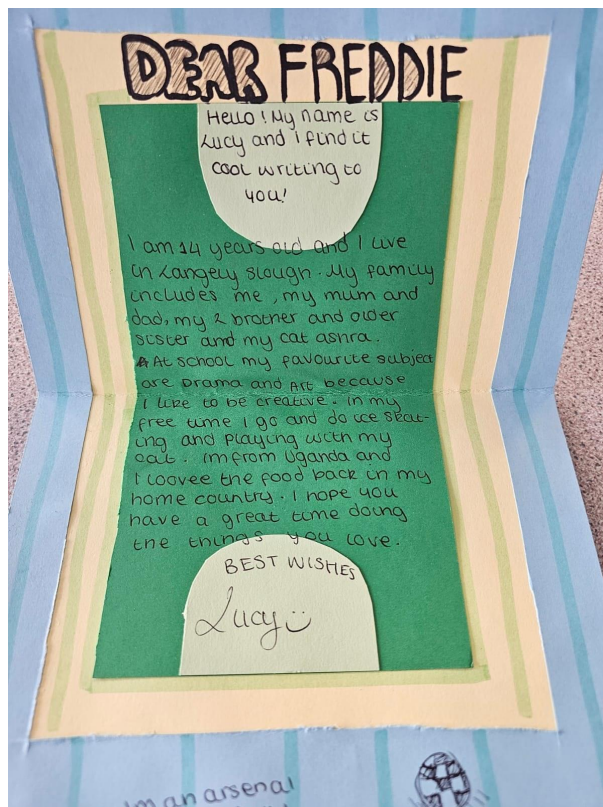 DEAR FREDDIE
Hello! My name is
Lucy and i find it
cool writing to
you!
I am 14 years old and I live
in Langely slough. My family
includes me, my mum and
dad, my 2 brother and older
sister and my cat ashra.
At school my favourite subject
are Drama and Art because
I like to be creative. In my
free time I go and do ice skat-
ing and playing with my
cat. Im from Uganda and
I loovee the food back in my
home country. I hope you
have a great time doing
the things you love.
BEST WISHES
Lucy
Im an arsenal